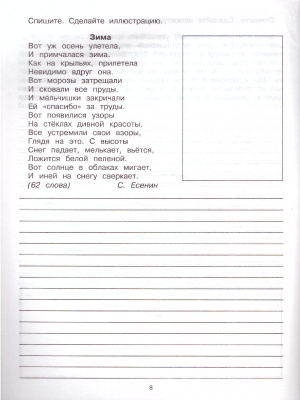 Спишите. Сделайте иллюстрацию.
Зима
Вот уж осень улетела,
И примчалася зима.
Как на крыльях, прилетела
Невидимо вдруг она.
Вот морозы затрещали
И сковали все пруды.
И мальчишки закричали
Ей «спасибо» за труды.
Вот появилися узоры
На стёклах дивной красоты.
Все устремили свои взоры,
Глядя на это. С высоты
Снег падает, мелькает, вьётся,
Ложится белой пеленой.
Вот солнце в облаках мигает,
И иней на снегу сверкает.
(62 слова) С. Есенин
8